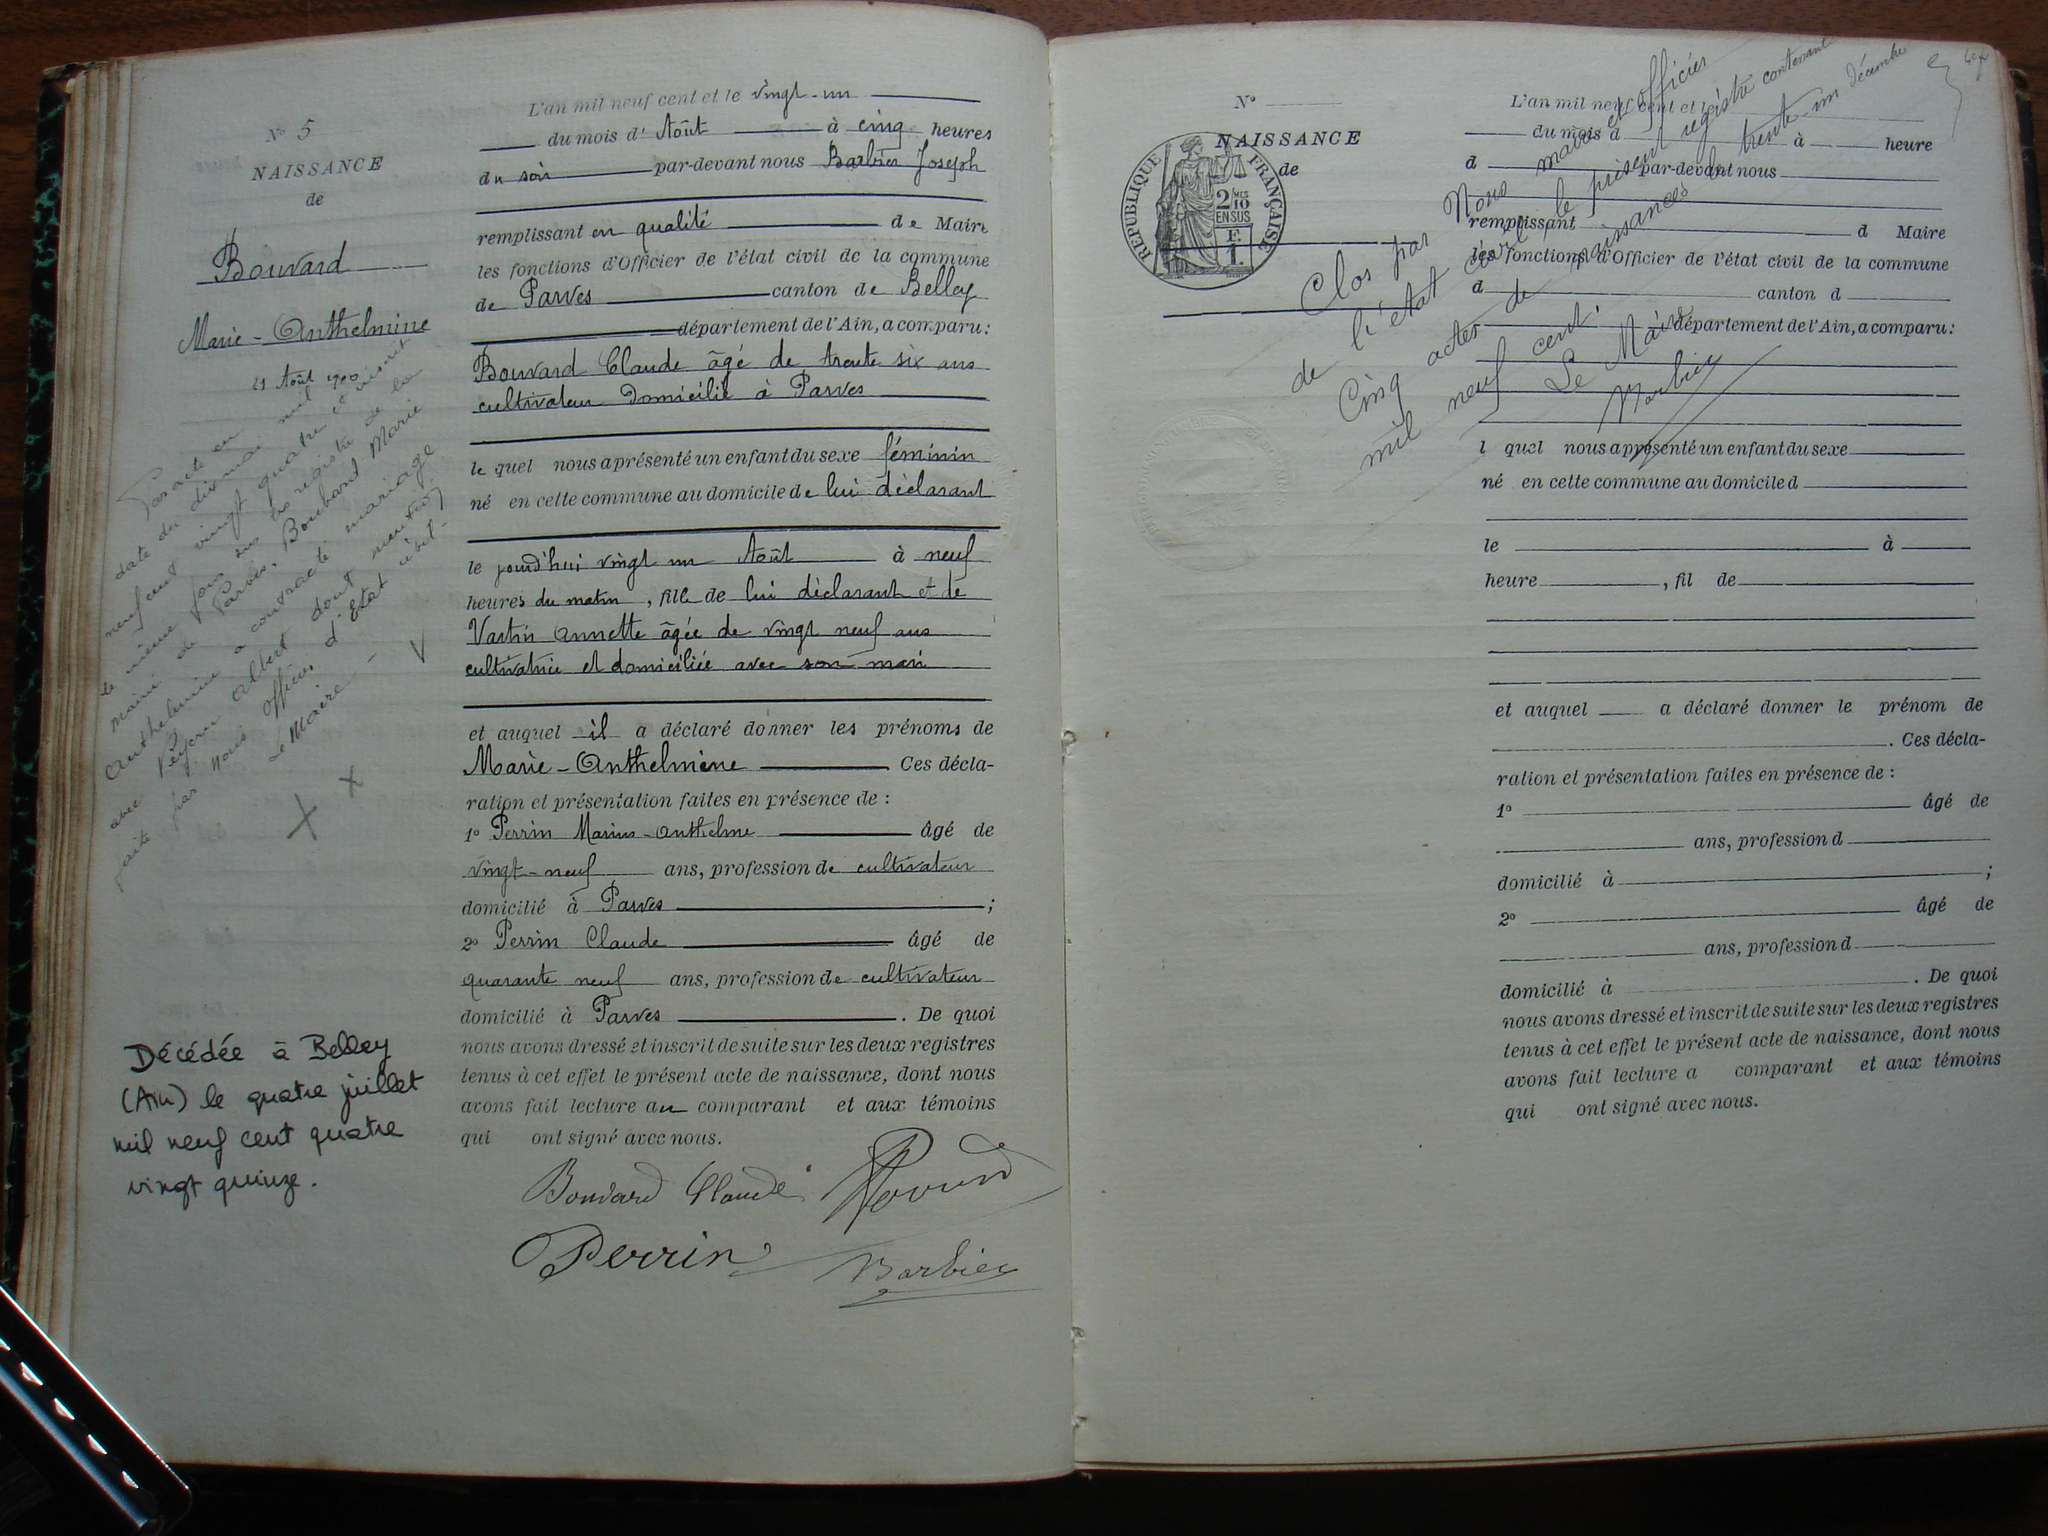 N° 5
NAISSANCE
de
Bouvard
Marie-Anthelmine
21 Août 1900
Par acte en
date du dix mai mil
neuf cent vingt quatre et inscrit
le même jour sur les registre de la
mairie de Parves, Bouchard Marie
Anthelmine a contracté mariage
avec Peyrin Albert dont mention
faite par Nous Officier d'Etat civil-
Le Maire -
Décédée à Belley
(Ain) le quatre juillet
mil neuf cent quatre
vingt quinze.
L'an mil neuf cent et le vingt-un
du mois d' Août à cinq heures
du soir par-devant nous Barbier Joseph
remplissant en qualité de Maire
les fonctions d'Officier de l'état civil de la commune
de Parves canton de Belley
département de l'Ain, a comparu:
Bouvard Claude âgé de trente six ans
cultivateur domicilié à Parves
le quel nous a présenté un enfant du sexe féminin
né en cette commune au domicile de lui déclarant
le jourd'hui vingt un Août à neuf
heures du matin, fille de lui déclarant et de
Vartin Annette âgée de vingt neuf ans
cultivatrice et domiciliée avec son mari
et auquel il a déclaré donner les prénoms de
Marie-Anthelmine Ces décla-
ration et présentation faites en présence de :
1° Perrin Marius-Anthelme âgé de
vingt-neuf ans, profession de cultivateur
domicilié à Parves ;
2° Perrin Claude âgé de
quarante neuf ans, profession de cultivateur
domicilié à Parves . De quoi
nous avons dressé et inscrit de suite sur les deux registres
tenus à cet effet le présent acte de naissance, dont nous
avons fait lecture au comparant et aux témoins
qui ont signé avec nous.
Bouvard Claude
Perrin Barbier
N°
NAISSANCE
de
REPUBLIQUE FRANÇAISE
2/10
EN SUS
F.
1.
Clos par Nous maire et officier
de l'état civil le présent registre contenant
Cinq actes de naissances le trente-un décembre
mil neuf cent.
Le Maire
Barbier
L'an mil neuf cent et l
du mois d à heure
d par-devant nous
remplissant d Maire
les fonctions d'Officier de l'état civil de la commune
d canton d
département de l'Ain, a comparu:
l quel nous a présenté un enfant du sexe
né en cette commune au domicile d
le à
heure , fil de
et auquel a déclaré donner le prénom de
. Ces décla-
ration et présentation faites en présence de :
1° âgé de
ans, profession d
domicilié à ;
2° âgé de
ans, profession d
domicilié à . De quoi
nous avons dressé et inscrit de suite sur les deux registres
tenus à cet effet le présent acte de naissance, dont nous
avons fait lecture a comparant et aux témoins
qui ont signé avec nous.